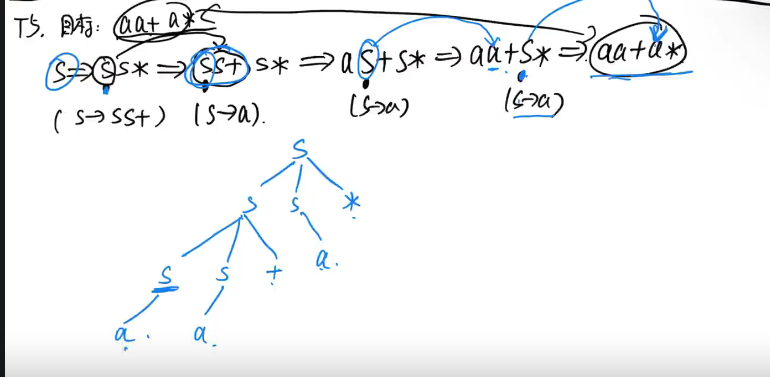 T5. 目标: aa+a*
S⇒SS*⇒SS+S*⇒aS+S*⇒aa+S*⇒aa+a*
(S→SS+) (S→a). (S→a) (S→a)
S
S S *
S S + a.
a. a.